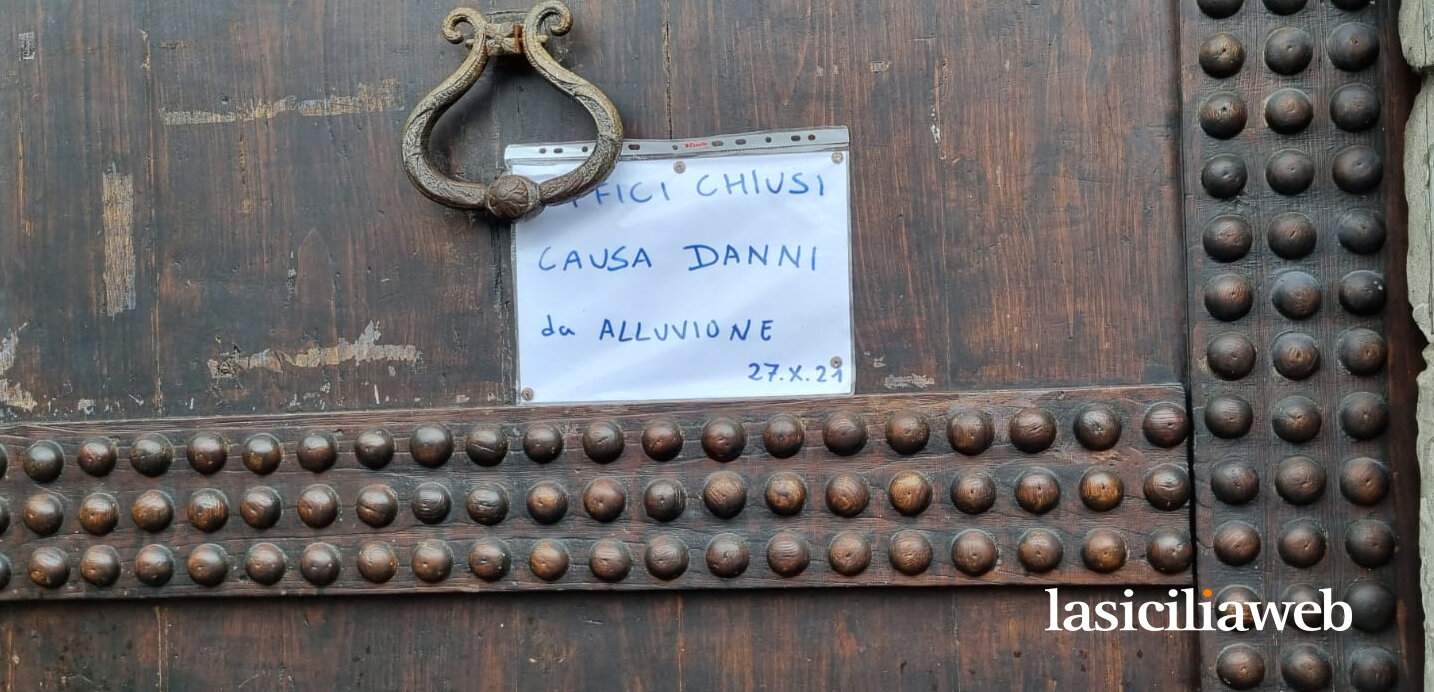 UFFICI CHIUSI
CAUSA DANNI
da ALLUVIONE
27.X.21
lasiciliaweb